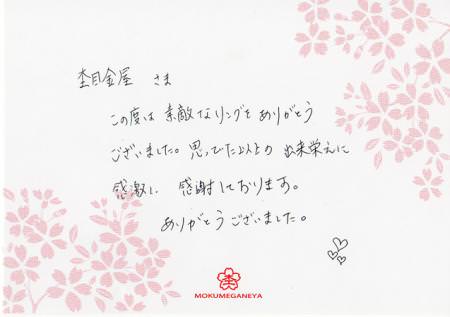 杢目金屋 さま
この度は 素敵なリングを ありがとう
ございました。思ってた以上の 出来栄えに
感激し 感謝しております。
ありがとうございました。
MOKUMEGANEYA